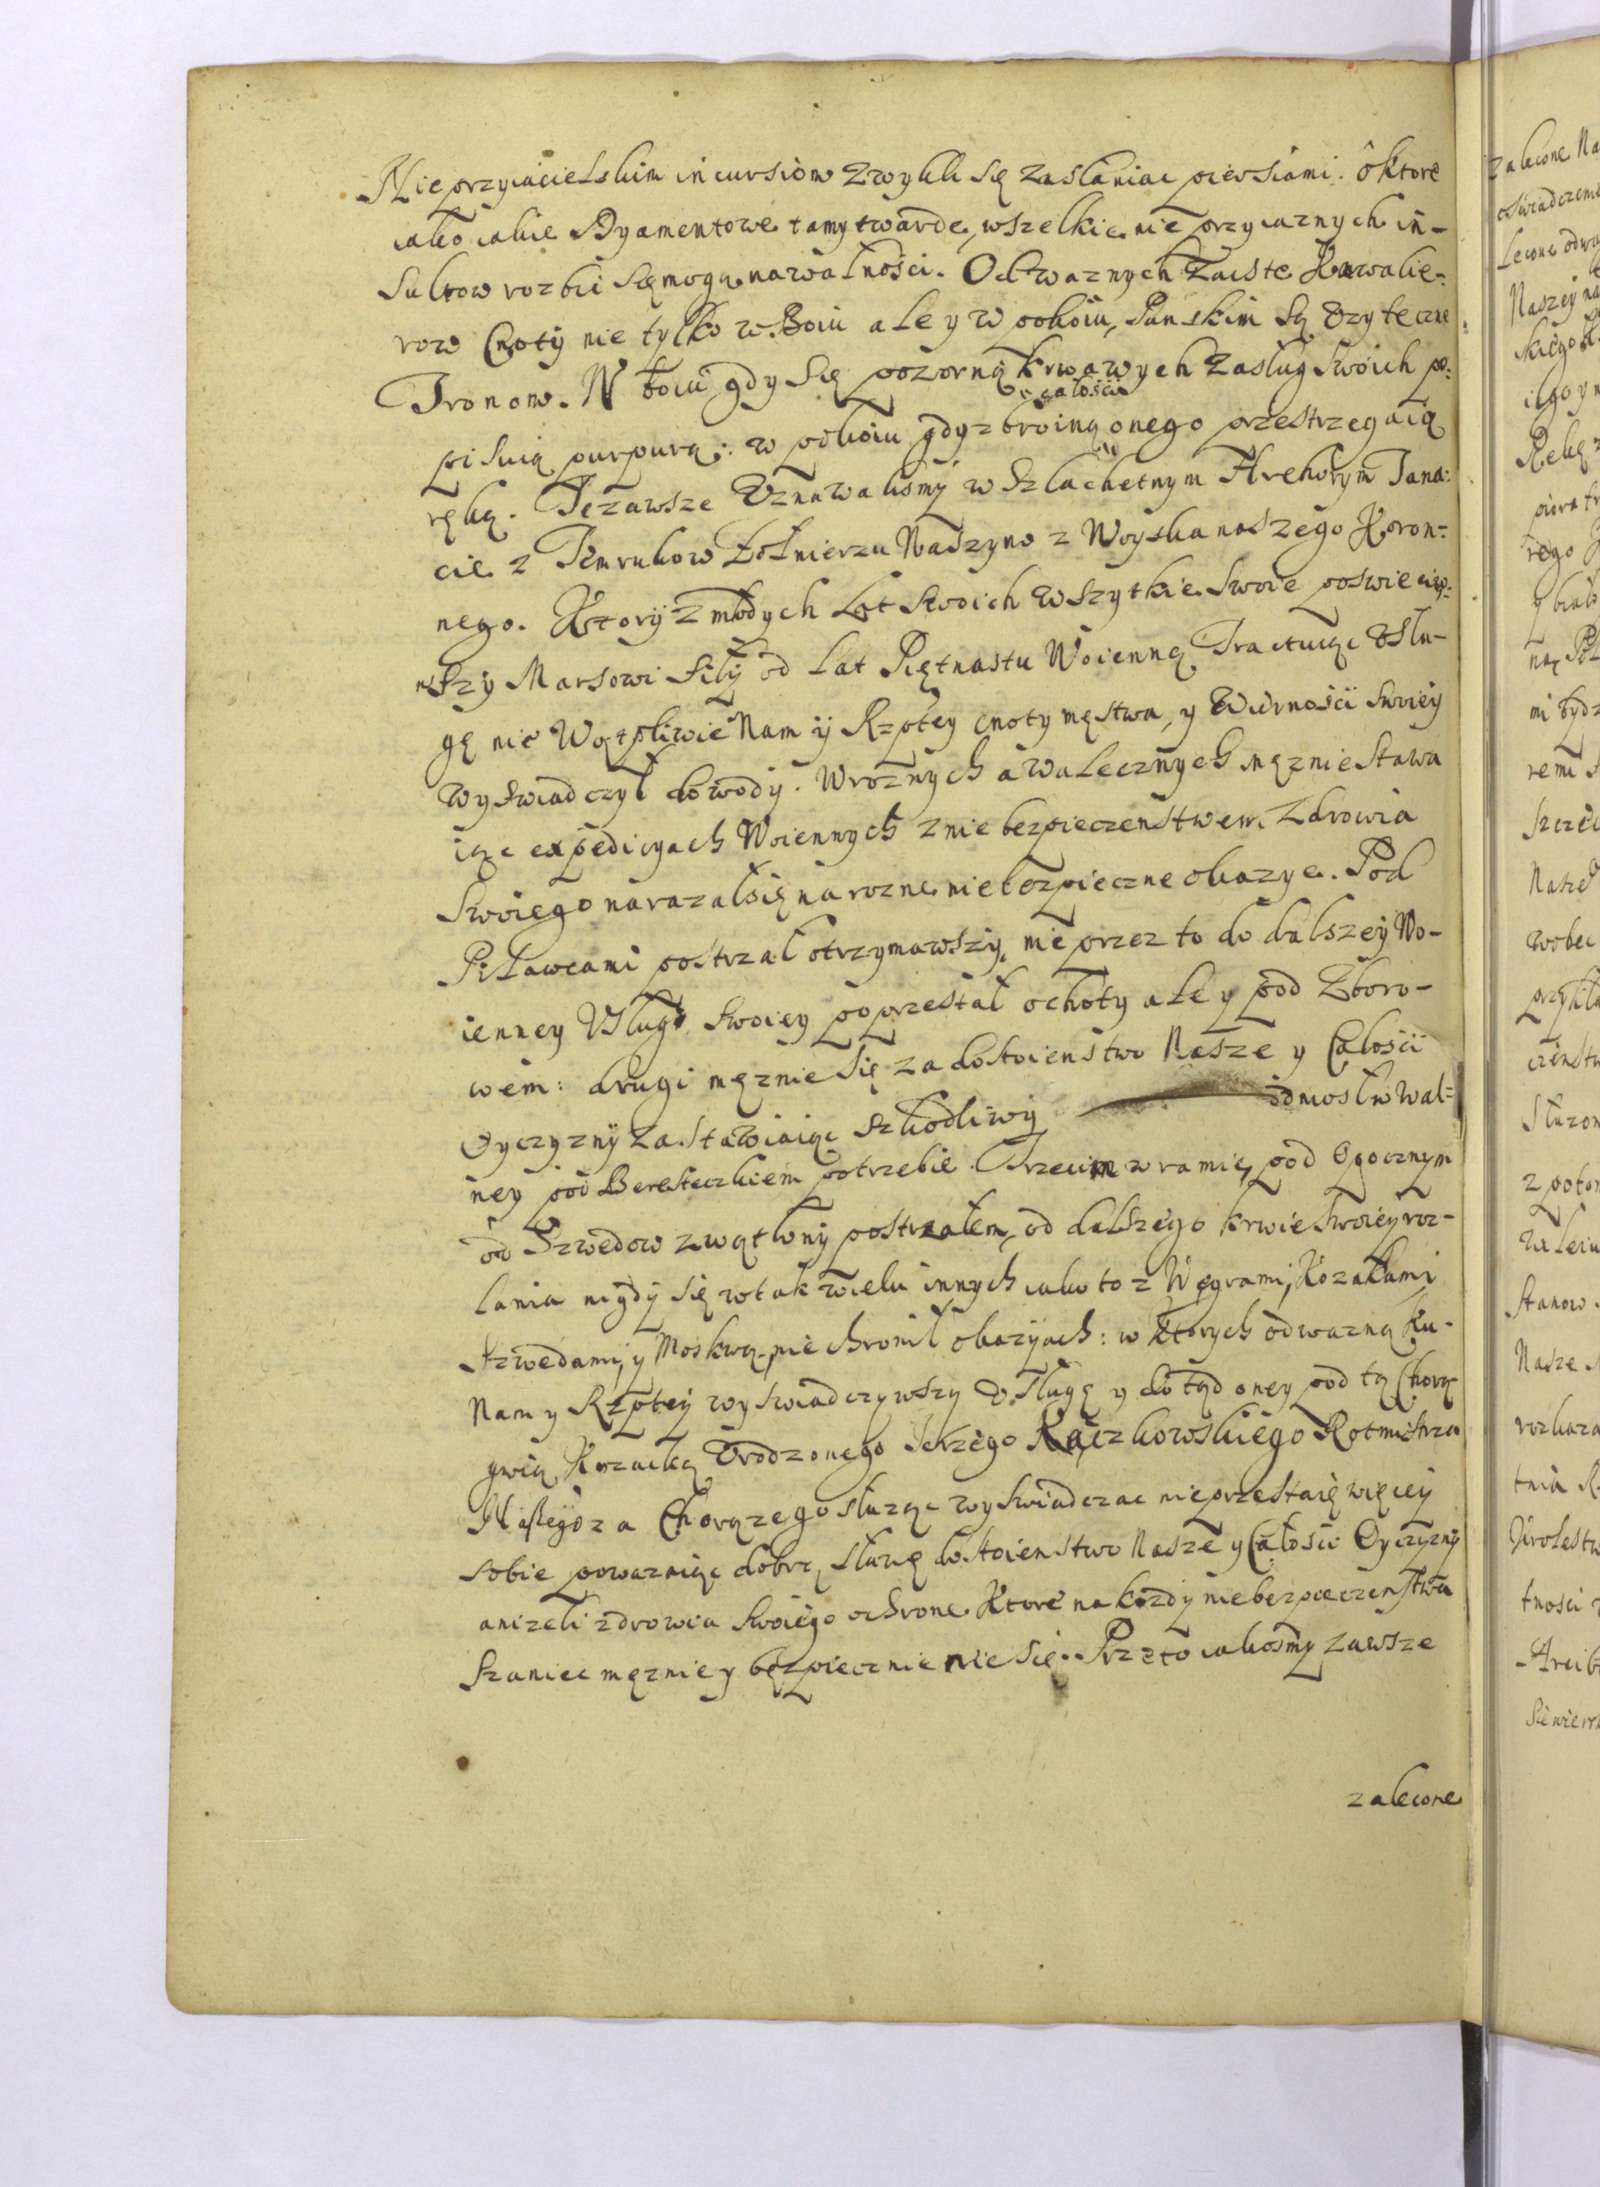 Nieprzyiacielskim incursiom zwykli się zasłaniac piersiami. o ktore
iako iakie Dyamentowe tamy twarde, wszelkie nieprzyiaznych in-
sultow rozbic się mogą nawalności. Odwaznych zaiste Kawalie-
row Cnoty nie tylko w Boiu ale y w pokoiu, Panskim są Uzyteczne
Tronom. W boiu gdy się pozorną krwawych zasług swoich po-
całości
pisuią purpurą: w pokoiu gdy zbroiną onego przestrzegaią
ręką. Te zawsze Uznawalismy w Szlachetnym Hrehorym Tana-
cie z Temrukow Zołnierzu Naszym z Woyska naszego Koron-
nego. Ktory z młodych Lat swoich wszytkie swoie poswieciw-
szy Marsowi siły od Lat Piętnastu Woienną Tractuiąc Usłu-
gę nie Wątpliwie Nam y Rzptey cnoty męstwa, y Wierności swoiey
wyswiadczył dowody. W roznych a walecznych męznie stawa
iąc expedicyach Woiennych z niebezpieczenstwem Zdrowia
swoiego narazał się na rozne niebezpieczne okazye. Pod
Piławcami postrzał otrzymawszy, nie przez to do dalszey Wo-
ienney Usługi swoiey poprzestał ochoty ale y pod Zboro-
wem: drugi męznie się za dostoienstwo Nasze y Całości
Oyczyzny zastawiaiąc szkodliwy odniosł w wal-
ney pod Beresteczkiem potrzebie. Trzecim w ramię, pod Opocznym
od Szwedow zwątlony postrzałem, od dalszego krwie swoiey roz-
lania nigdy się w tak wielu innych iako to z Węgrami, Kozakami
Szwedami, y Moskwą, nie chronił okazyach: w ktorych odwazną ku-
Nam y Rzptey wyswiadczywszy Usługę y do tąd oney pod tą Chorą-
gwią Kozacką Urodzonego Jerzego Rączkowskiego Rotmistrza
Naszego za Chorązego słuząc wyswiadczac nie przestaię więcey
sobie powazniąc dobrą sławę dostoienstwo Nasze y Całości Oyczyzny
anizeli zdrowia swoiego ochrone. Ktore na kozdy niebezpieczenstwa
szaniec męznie y bezpiecznie niesie. Przeto iakosmy zawsze
zalecone